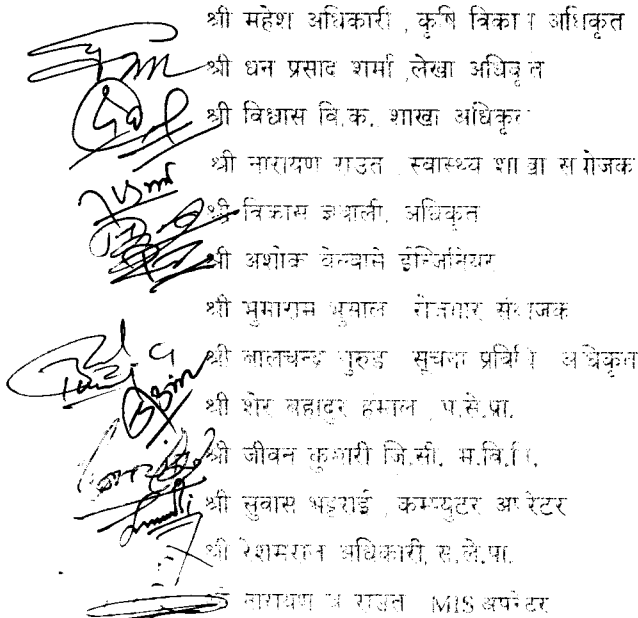 श्री महेश अधिकारी , कृषि विकास अधिकृत
श्री धन प्रसाद शर्मा ,लेखा अधिकृत
श्री विधास वि.क. शाखा अधिकृत
श्री नारायण राउत , स्वास्थ्य शाखा संयोजक
श्री विकास ज्ञवाली, अधिकृत
श्री अशोक वेल्वासे ईन्जिनियर
श्री भुमाराम भुसाल रोजगार संयोजक
श्री बालचन्द्र गुरुङ सूचना प्रविधि अधिकृत
श्री शेर बहादुर हमाल , प.से.प्रा.
श्री जीवन कुमारी जि.सी. म.वि.नि.
श्री सुवास भट्टराई , कम्प्युटर अपरेटर
श्री रेशमराज अधिकारी, स.ले.पा.
श्री नारायण राउत MIS अपरेटर